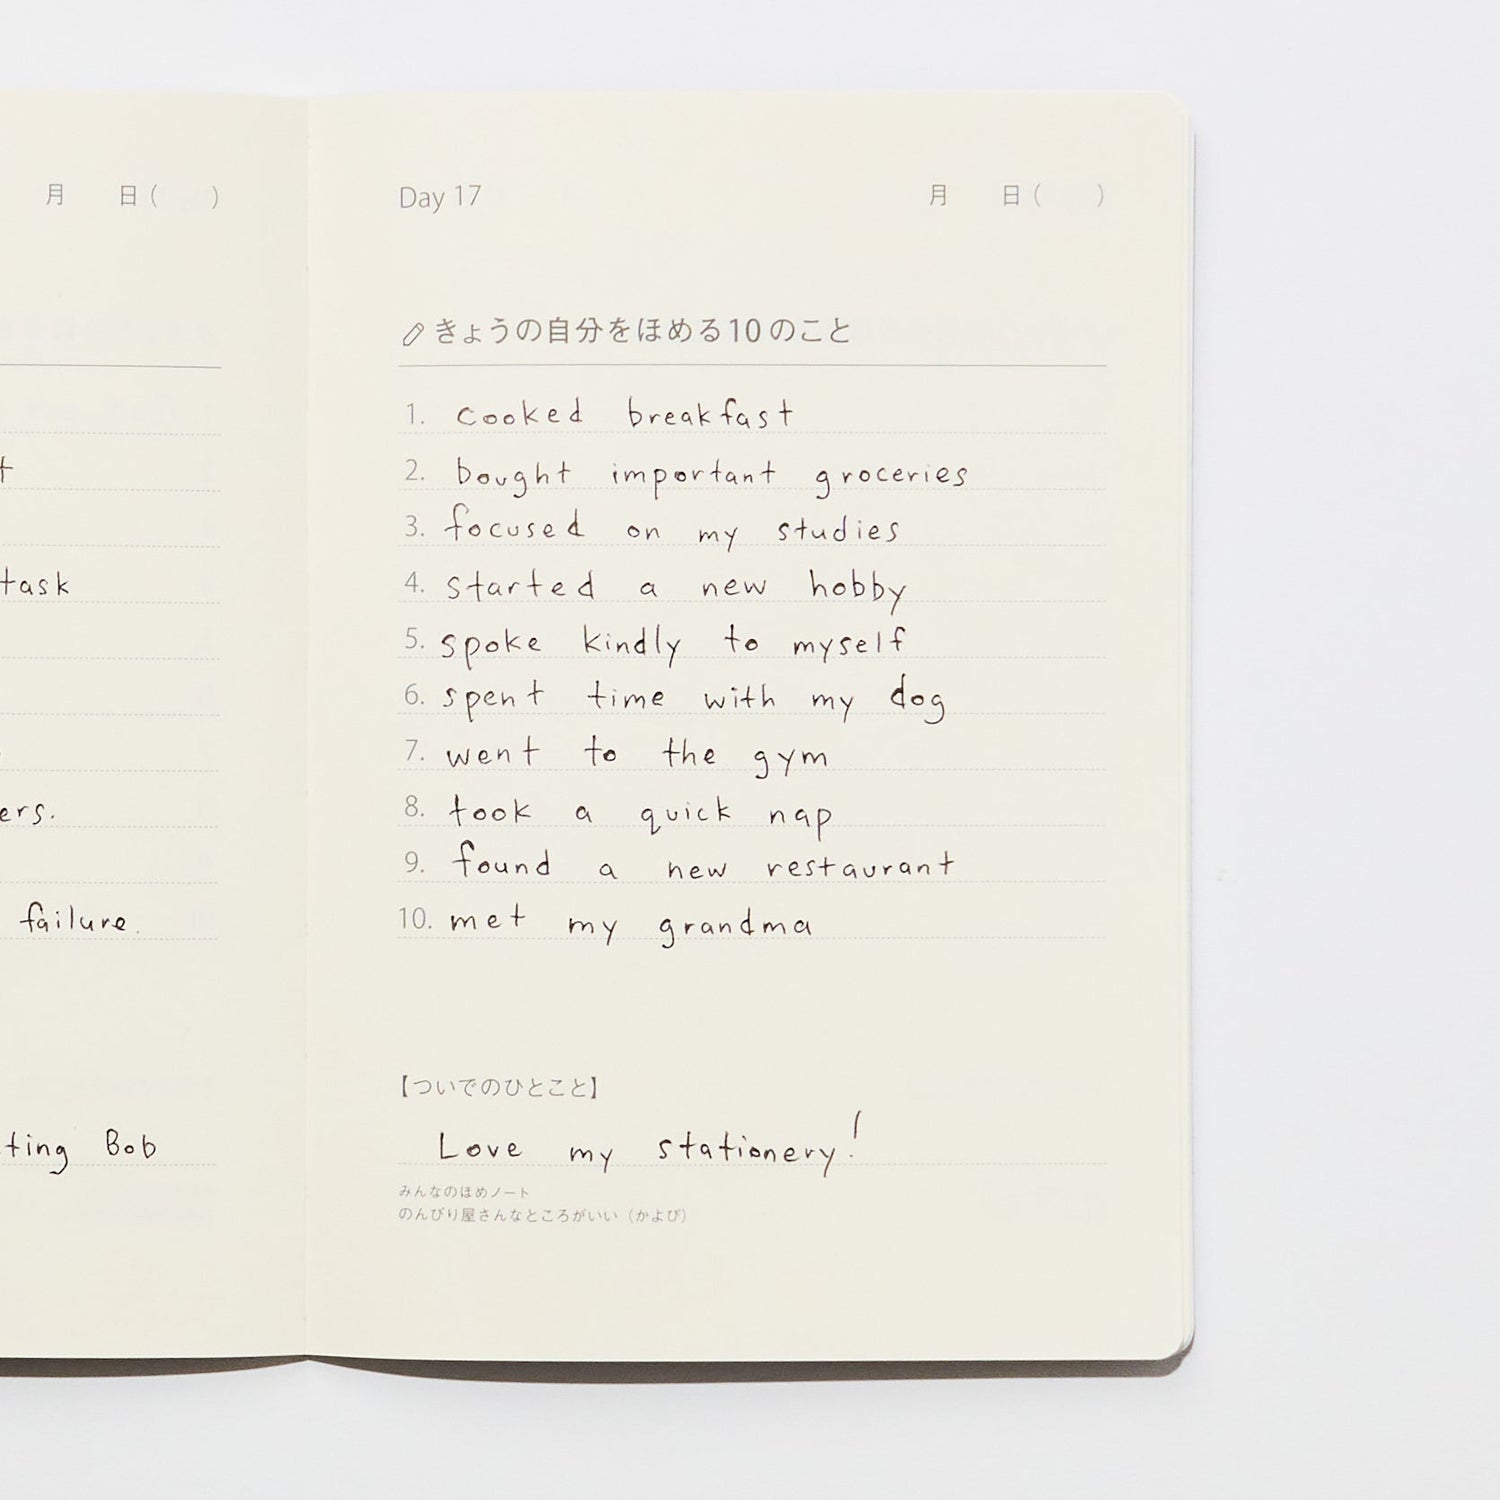 月 日( )
t
task
ers.
failure.
ting Bob
Day 17 月 日( )
きょうの自分をほめる10のこと
1. cooked breakfast
2. bought important groceries
3. focused on my studies
4. started a new hobby
5. spoke kindly to myself
6. spent time with my dog
7. went to the gym
8. took a quick nap
9. found a new restaurant
10. met my grandma
【ついでのひとこと】
Love my stationery!
みんなのほめノート
のんびり屋さんなところがいい（かよぴ）